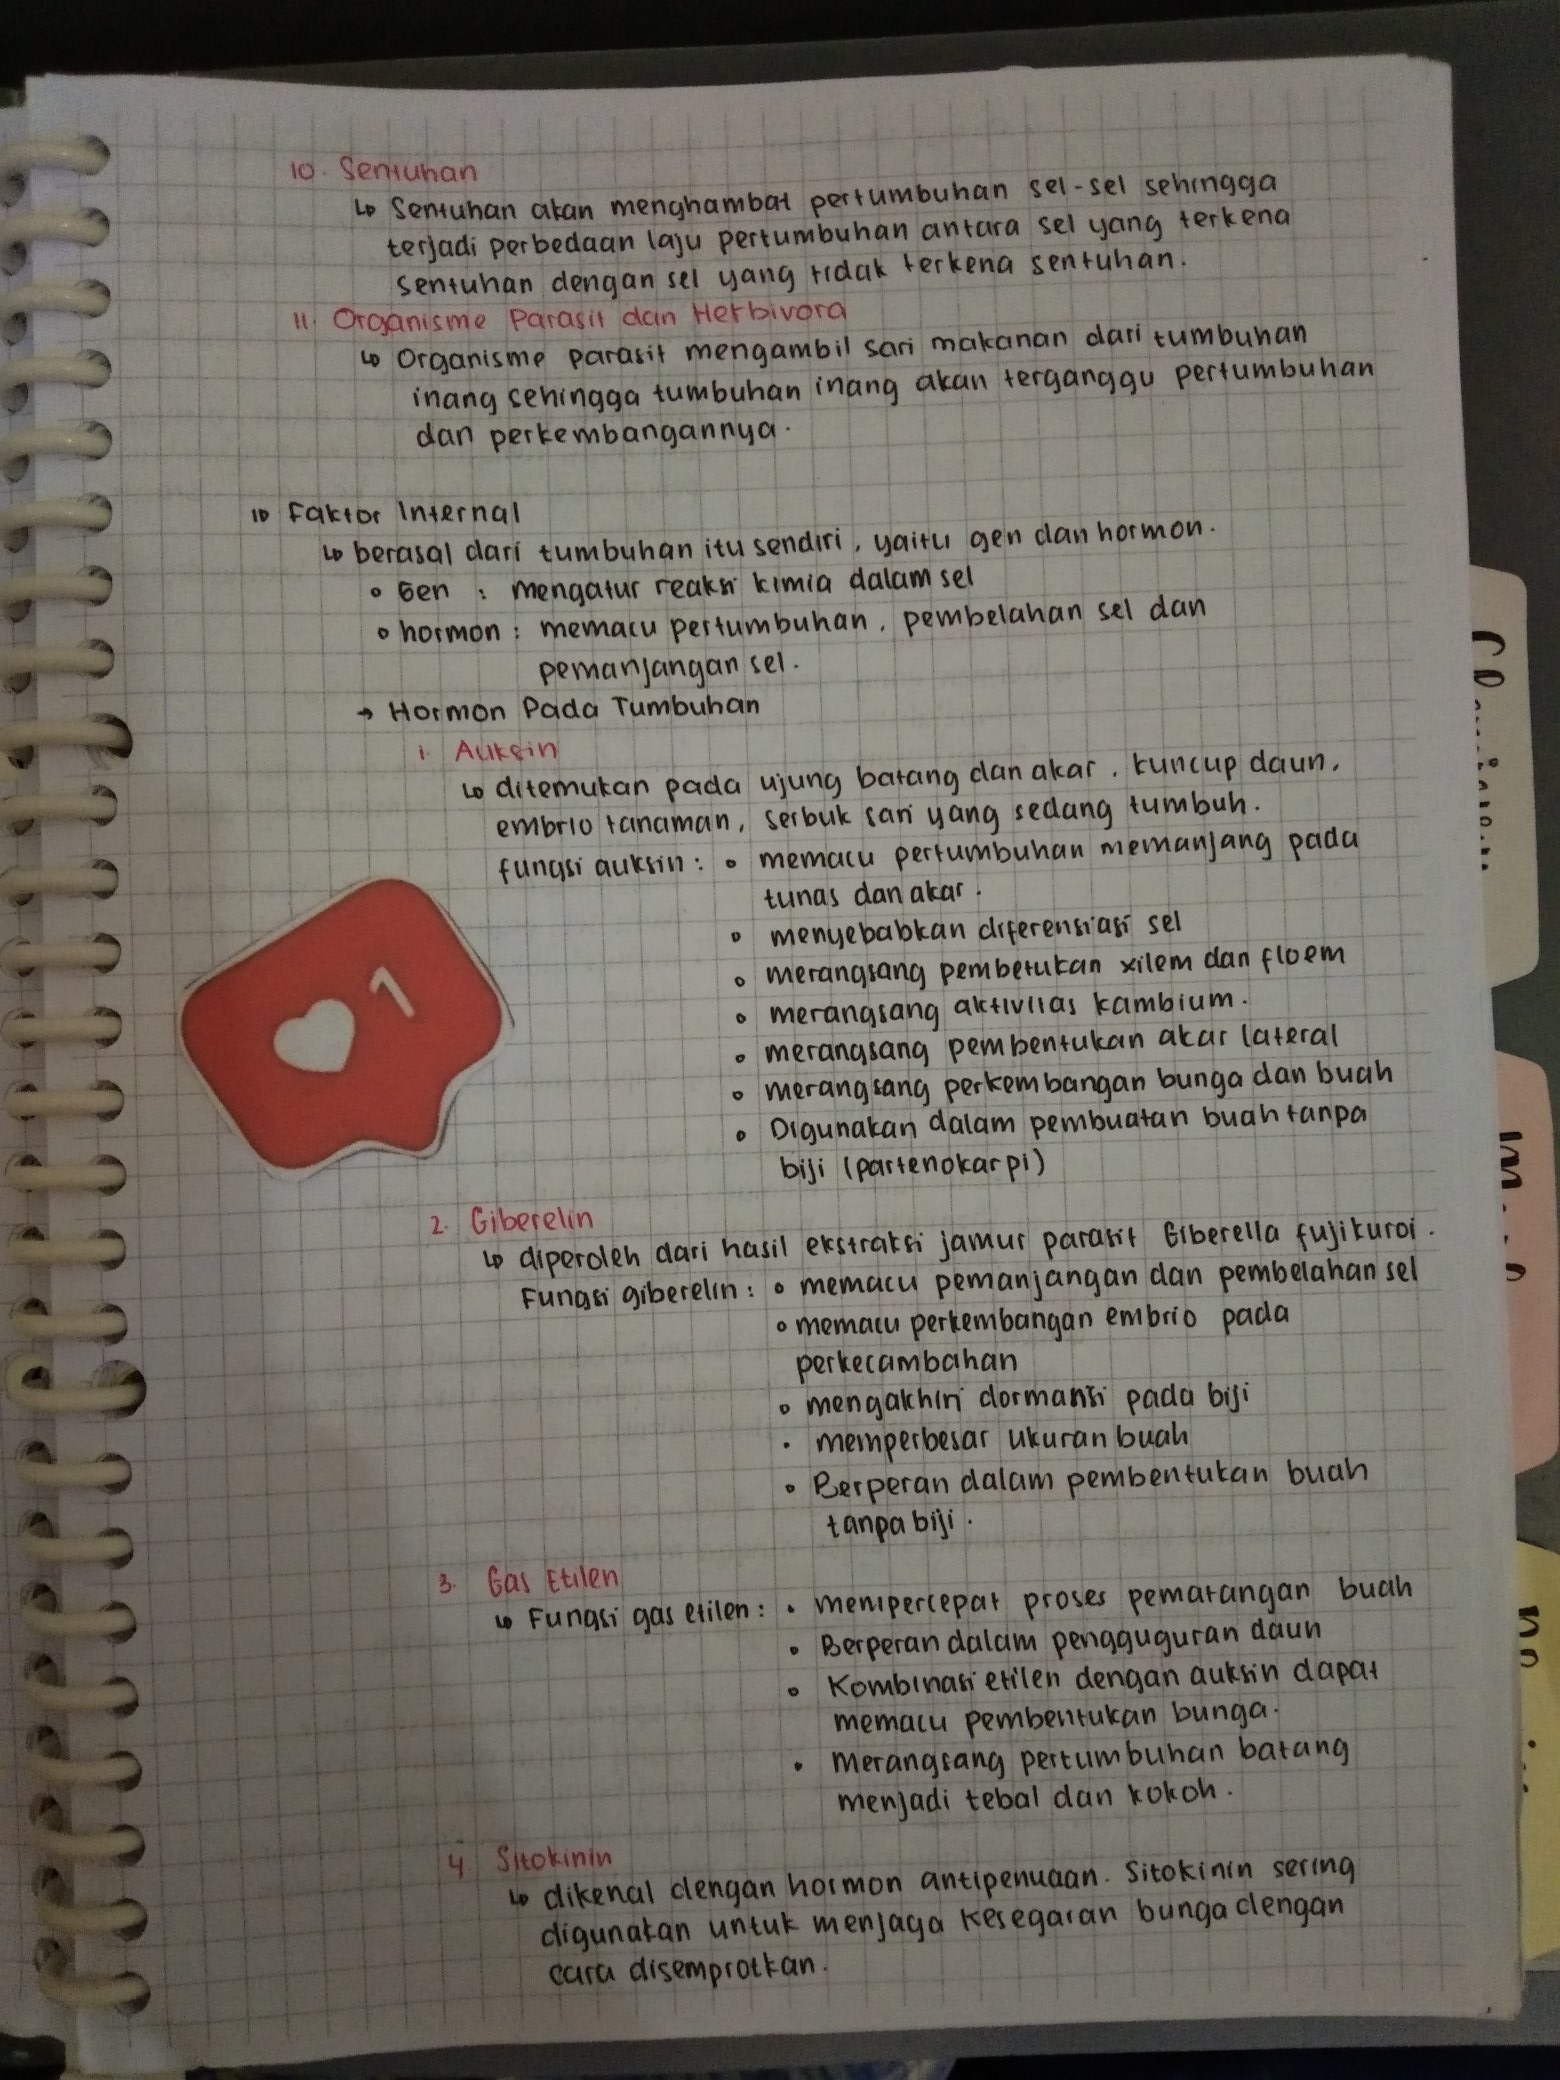 10. Sentuhan
↳ Sentuhan akan menghambat pertumbuhan sel-sel sehingga
terjadi perbedaan laju pertumbuhan antara sel yang terkena
sentuhan dengan sel yang tidak terkena sentuhan.
11. Organisme Parasit dan Herbivora
↳ Organisme parasit mengambil sari makanan dari tumbuhan
inang sehingga tumbuhan inang akan terganggu pertumbuhan
dan perkembangannya.
Faktor Internal
↳ berasal dari tumbuhan itu sendiri, yaitu gen dan hormon.
• Gen : mengatur reaksi kimia dalam sel
• hormon : memacu pertumbuhan, pembelahan sel dan
pemanjangan sel.
→ Hormon Pada Tumbuhan
1. Auksin
↳ ditemukan pada ujung batang dan akar, kuncup daun,
embrio tanaman, serbuk sari yang sedang tumbuh.
fungsi auksin : • memacu pertumbuhan memanjang pada
tunas dan akar.
• menyebabkan diferensiasi sel
• merangsang pembetukan xilem dan floem
• merangsang aktivitas kambium.
• merangsang pembentukan akar lateral
• merangsang perkembangan bunga dan buah
• Digunakan dalam pembuatan buah tanpa
biji (partenokarpi)
1
2. Giberelin
↳ diperoleh dari hasil ekstraksi jamur parasit Giberella fujikuroi.
Fungsi giberelin : • memacu pemanjangan dan pembelahan sel
• memacu perkembangan embrio pada
perkecambahan
• mengakhiri dormansi pada biji
• memperbesar ukuran buah
• Berperan dalam pembentukan buah
tanpa biji.
3. Gas Etilen
↳ Fungsi gas etilen : • mempercepat proses pematangan buah
• Berperan dalam pengguguran daun
• Kombinasi etilen dengan auksin dapat
memacu pembentukan bunga.
• Merangsang pertumbuhan batang
menjadi tebal dan kokoh.
4. Sitokinin
↳ dikenal dengan hormon antipenuaan. Sitokinin sering
digunakan untuk menjaga kesegaran bunga dengan
cara disemprotkan.